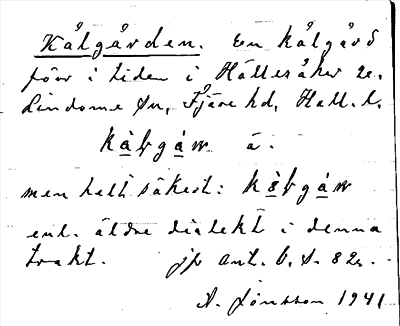 Kålgården. En kålgård
förr i tiden i Hällesåker 2e,
Lindome sn, Fjäre hd, Hall. l.
kàłgáɴ å.
men helt säkert: kòłgáɴ
enl. äldre dialekt i denna
trakt. jfr ant. b. s. 82.
A. Jönsson 1941